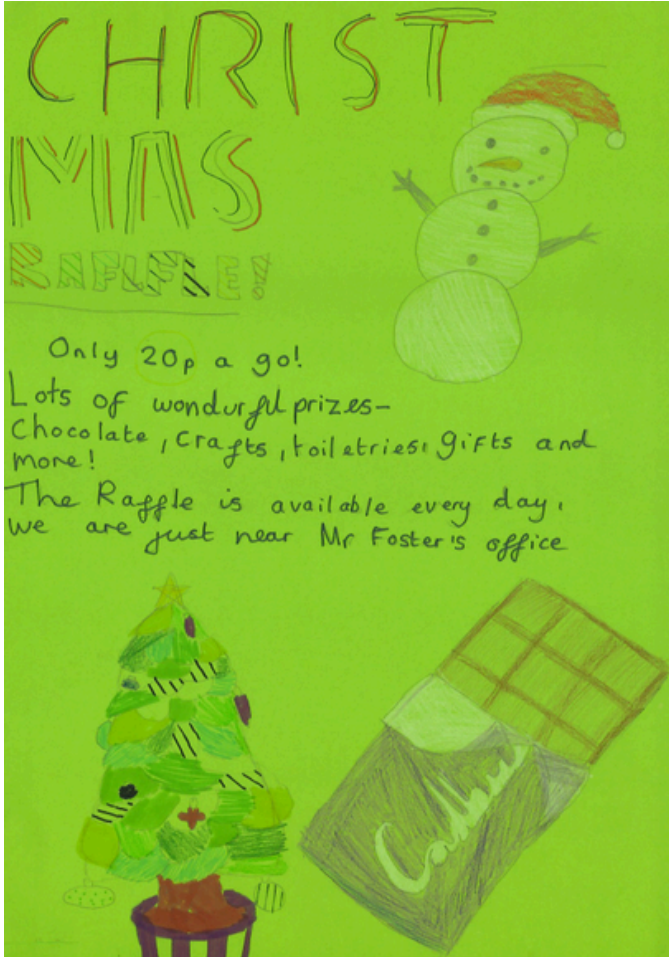 CHRIST
MAS
RAFLFLE!
Only 20p a go!
Lots of wondurful prizes-
Chocolate, Crafts, toiletries, gifts and
more!
The Raffle is available every day,
we are just near Mr Foster's office
Cadbu